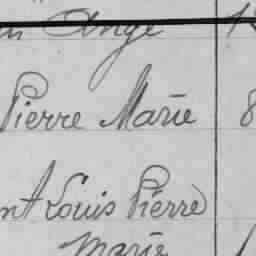 Ange
Pierre Marie 8
nt Louis Pierre
Marie